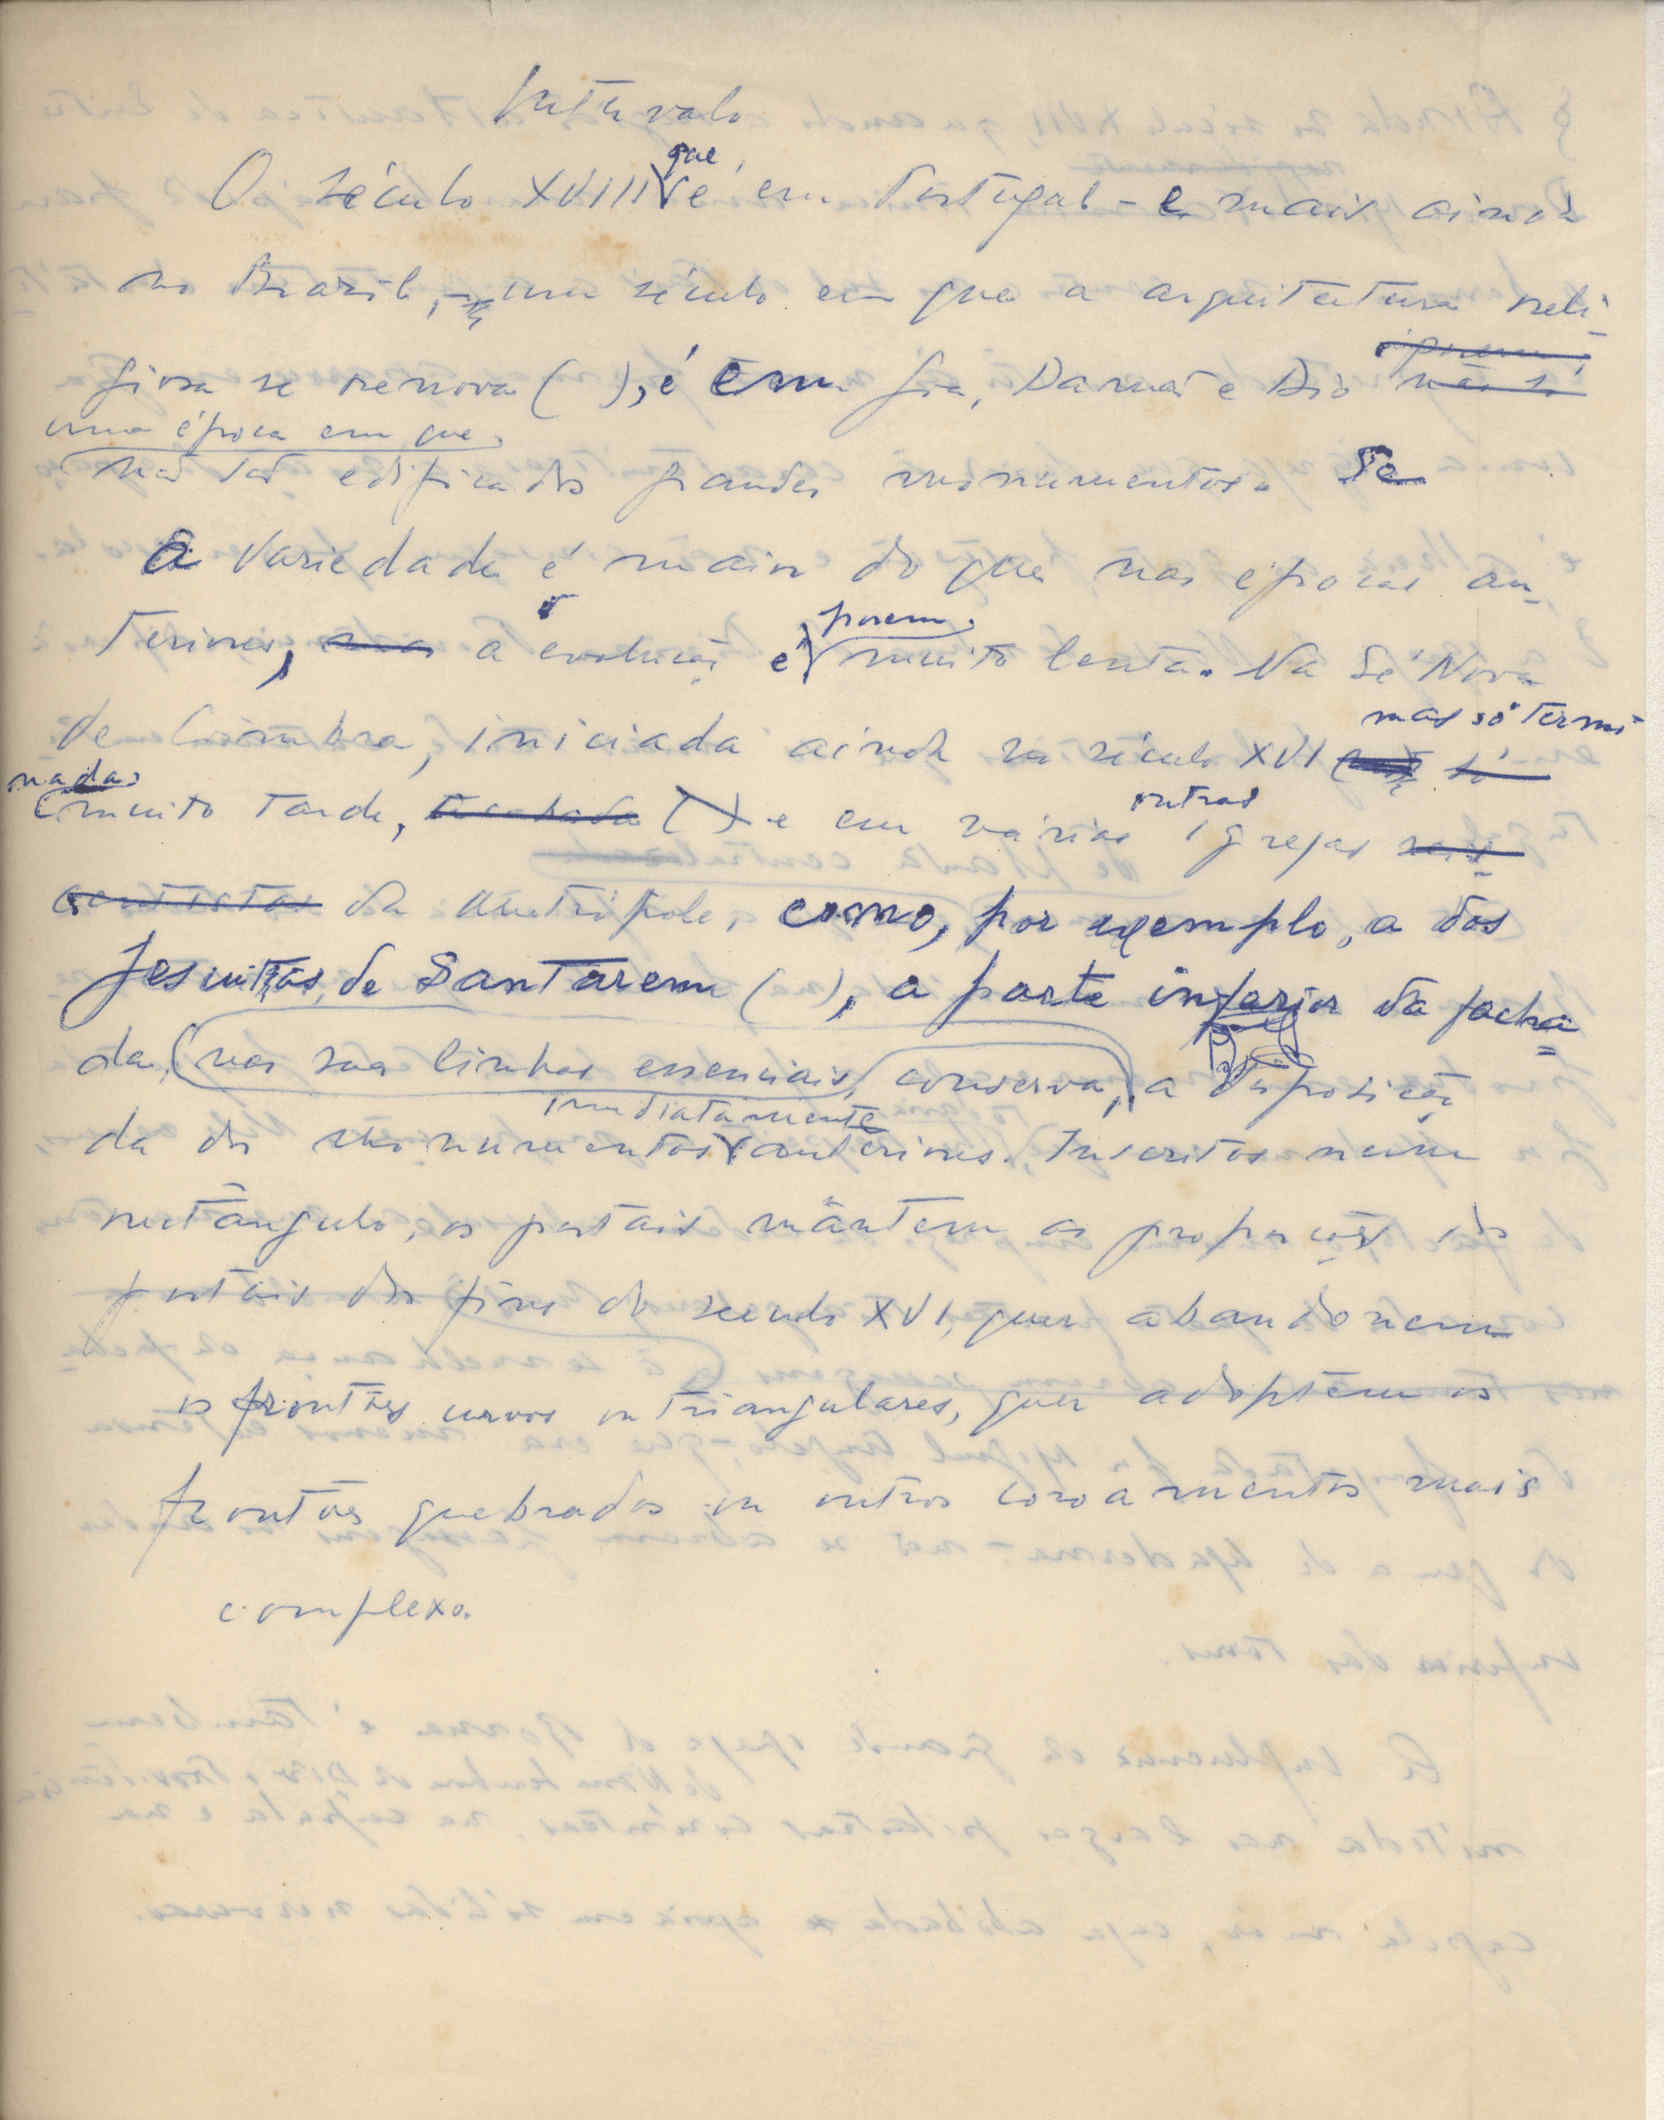 Intervalo
que
O século XVIII é em Portugal - e mais ainda
no Brazil, - um século em que a arquitetura reli-
giosa se renova ( ), é em Goa, Damão e Dio não só
uma época em que
não são edificados grandes monumentos. Se
a variedade é maior do que nas épocas an-
porem,
teriores, mas a evolução é muito lenta. Na Sé Nova
mas só termi
de Coimbra, iniciada ainda no século XVI mas só
nada
muito tarde, acabada ( ) e em várias igrejas
outras
da metrópole, como, por exemplo, a dos
Jesuitas de Santarem ( ), a parte inferior da facha
da, nas suas linhas essenciais, conserva, a disposição
imediatamente
da dos monumentos anteriores. Inscritos num
rectângulo, os portais mântem as proporções dos
portais dos fins do seculo XVI, quer abandonem
os frontões curvos ou triangulares, quer adoptem os
frontões quebrados ou outros coroamentos mais
complexo.